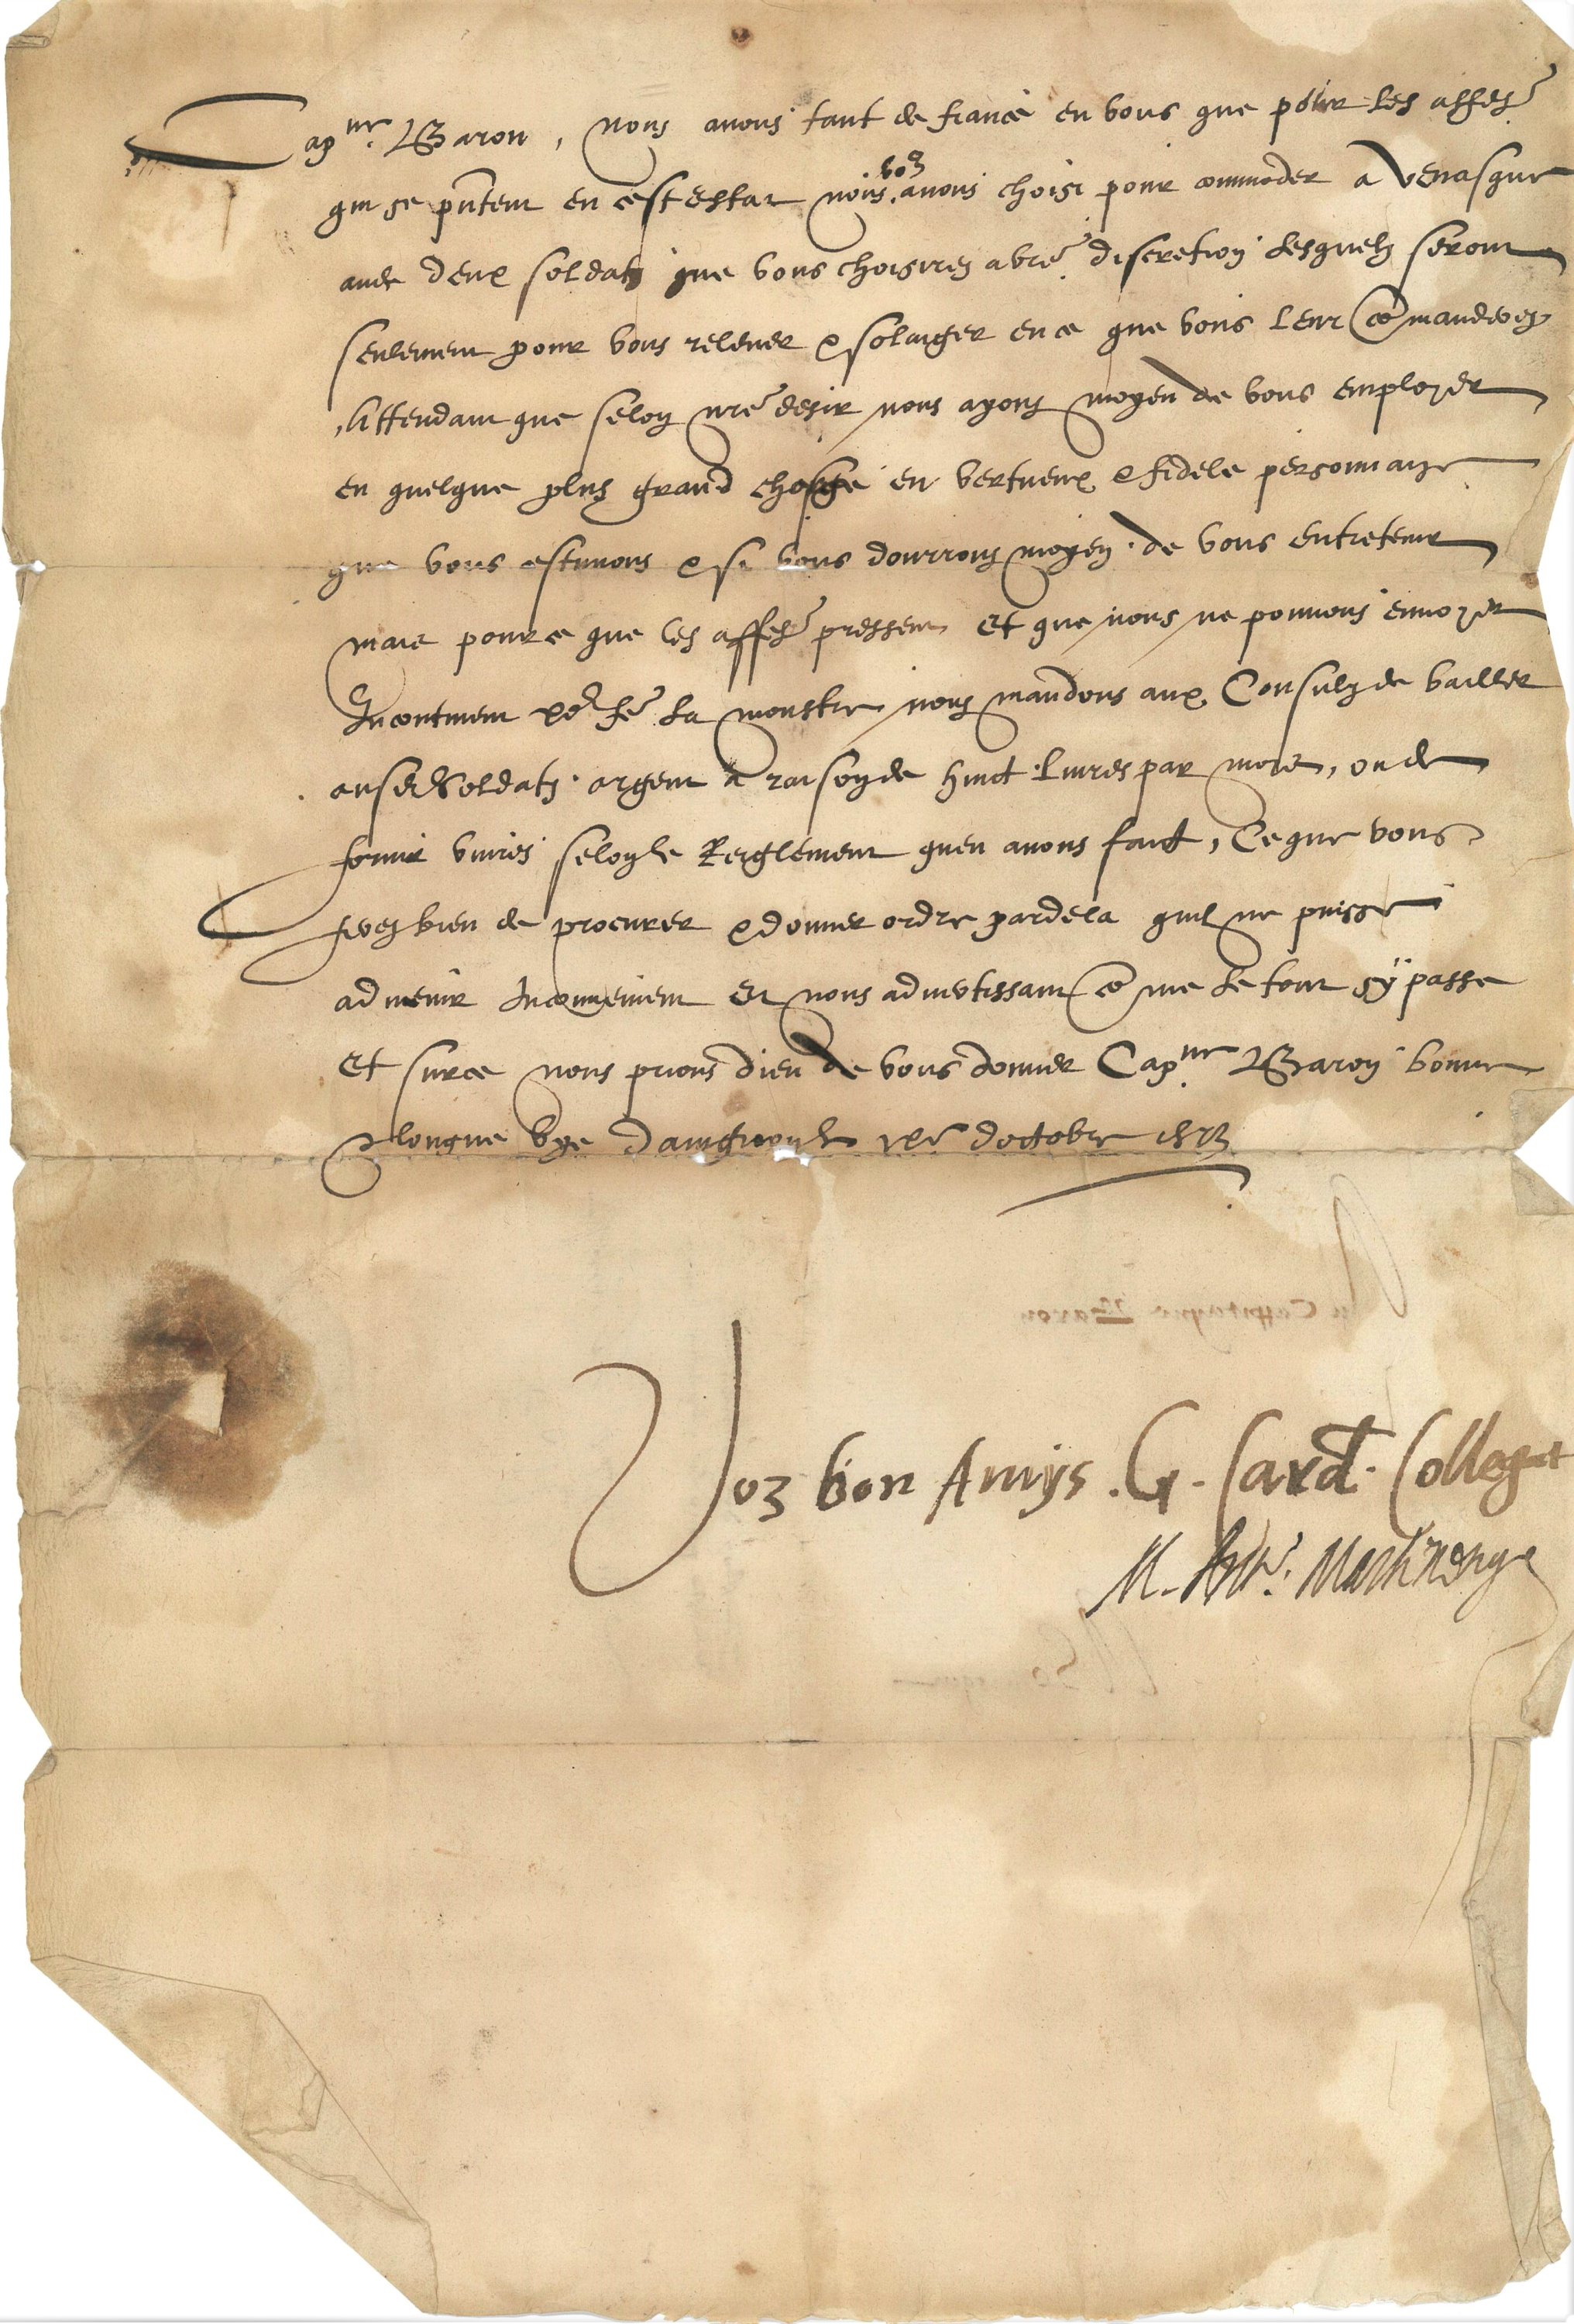 Cap.ne Baron, nous auons tant de fiance en vous que pour les affes
qui se pntent en cest estat nous voz auons choisi pour commader a Venasque
auec deux soldatz que vous choisirez a vre discretion lesquelz seront
seulement pour vous releuer & solaiger en ce que vous leur comanderez
Attendant que selon nre desir nous ayons moyen de vous employer
en quelque plus grand chose en vertueux & fidele personnaige
que vous estimons & si vous donrrons moyen de vous entretenir
mais pource que les affes pressent et que nous ne pouuons enuoyer
Incontinent fe la monstre nous mandons aux Consulz de bailler
soldatz argent a raison de huict liures par mois, ou de
fornir viures selon le Reiglement quen auons faict, Ce que vous
ferez bien de procurer & donner ordre pardela quil ne puisse
aduenir Inconuenient et nous aduertissant come le tout sy passe
et surce nous prions dieu de vous donner Cap.ne Baron bonne
& longue vye Dauignon le doctobre
Voz bon Amys. G. Card. Colleg
M. Martinengo
Au Cappitayne Baron